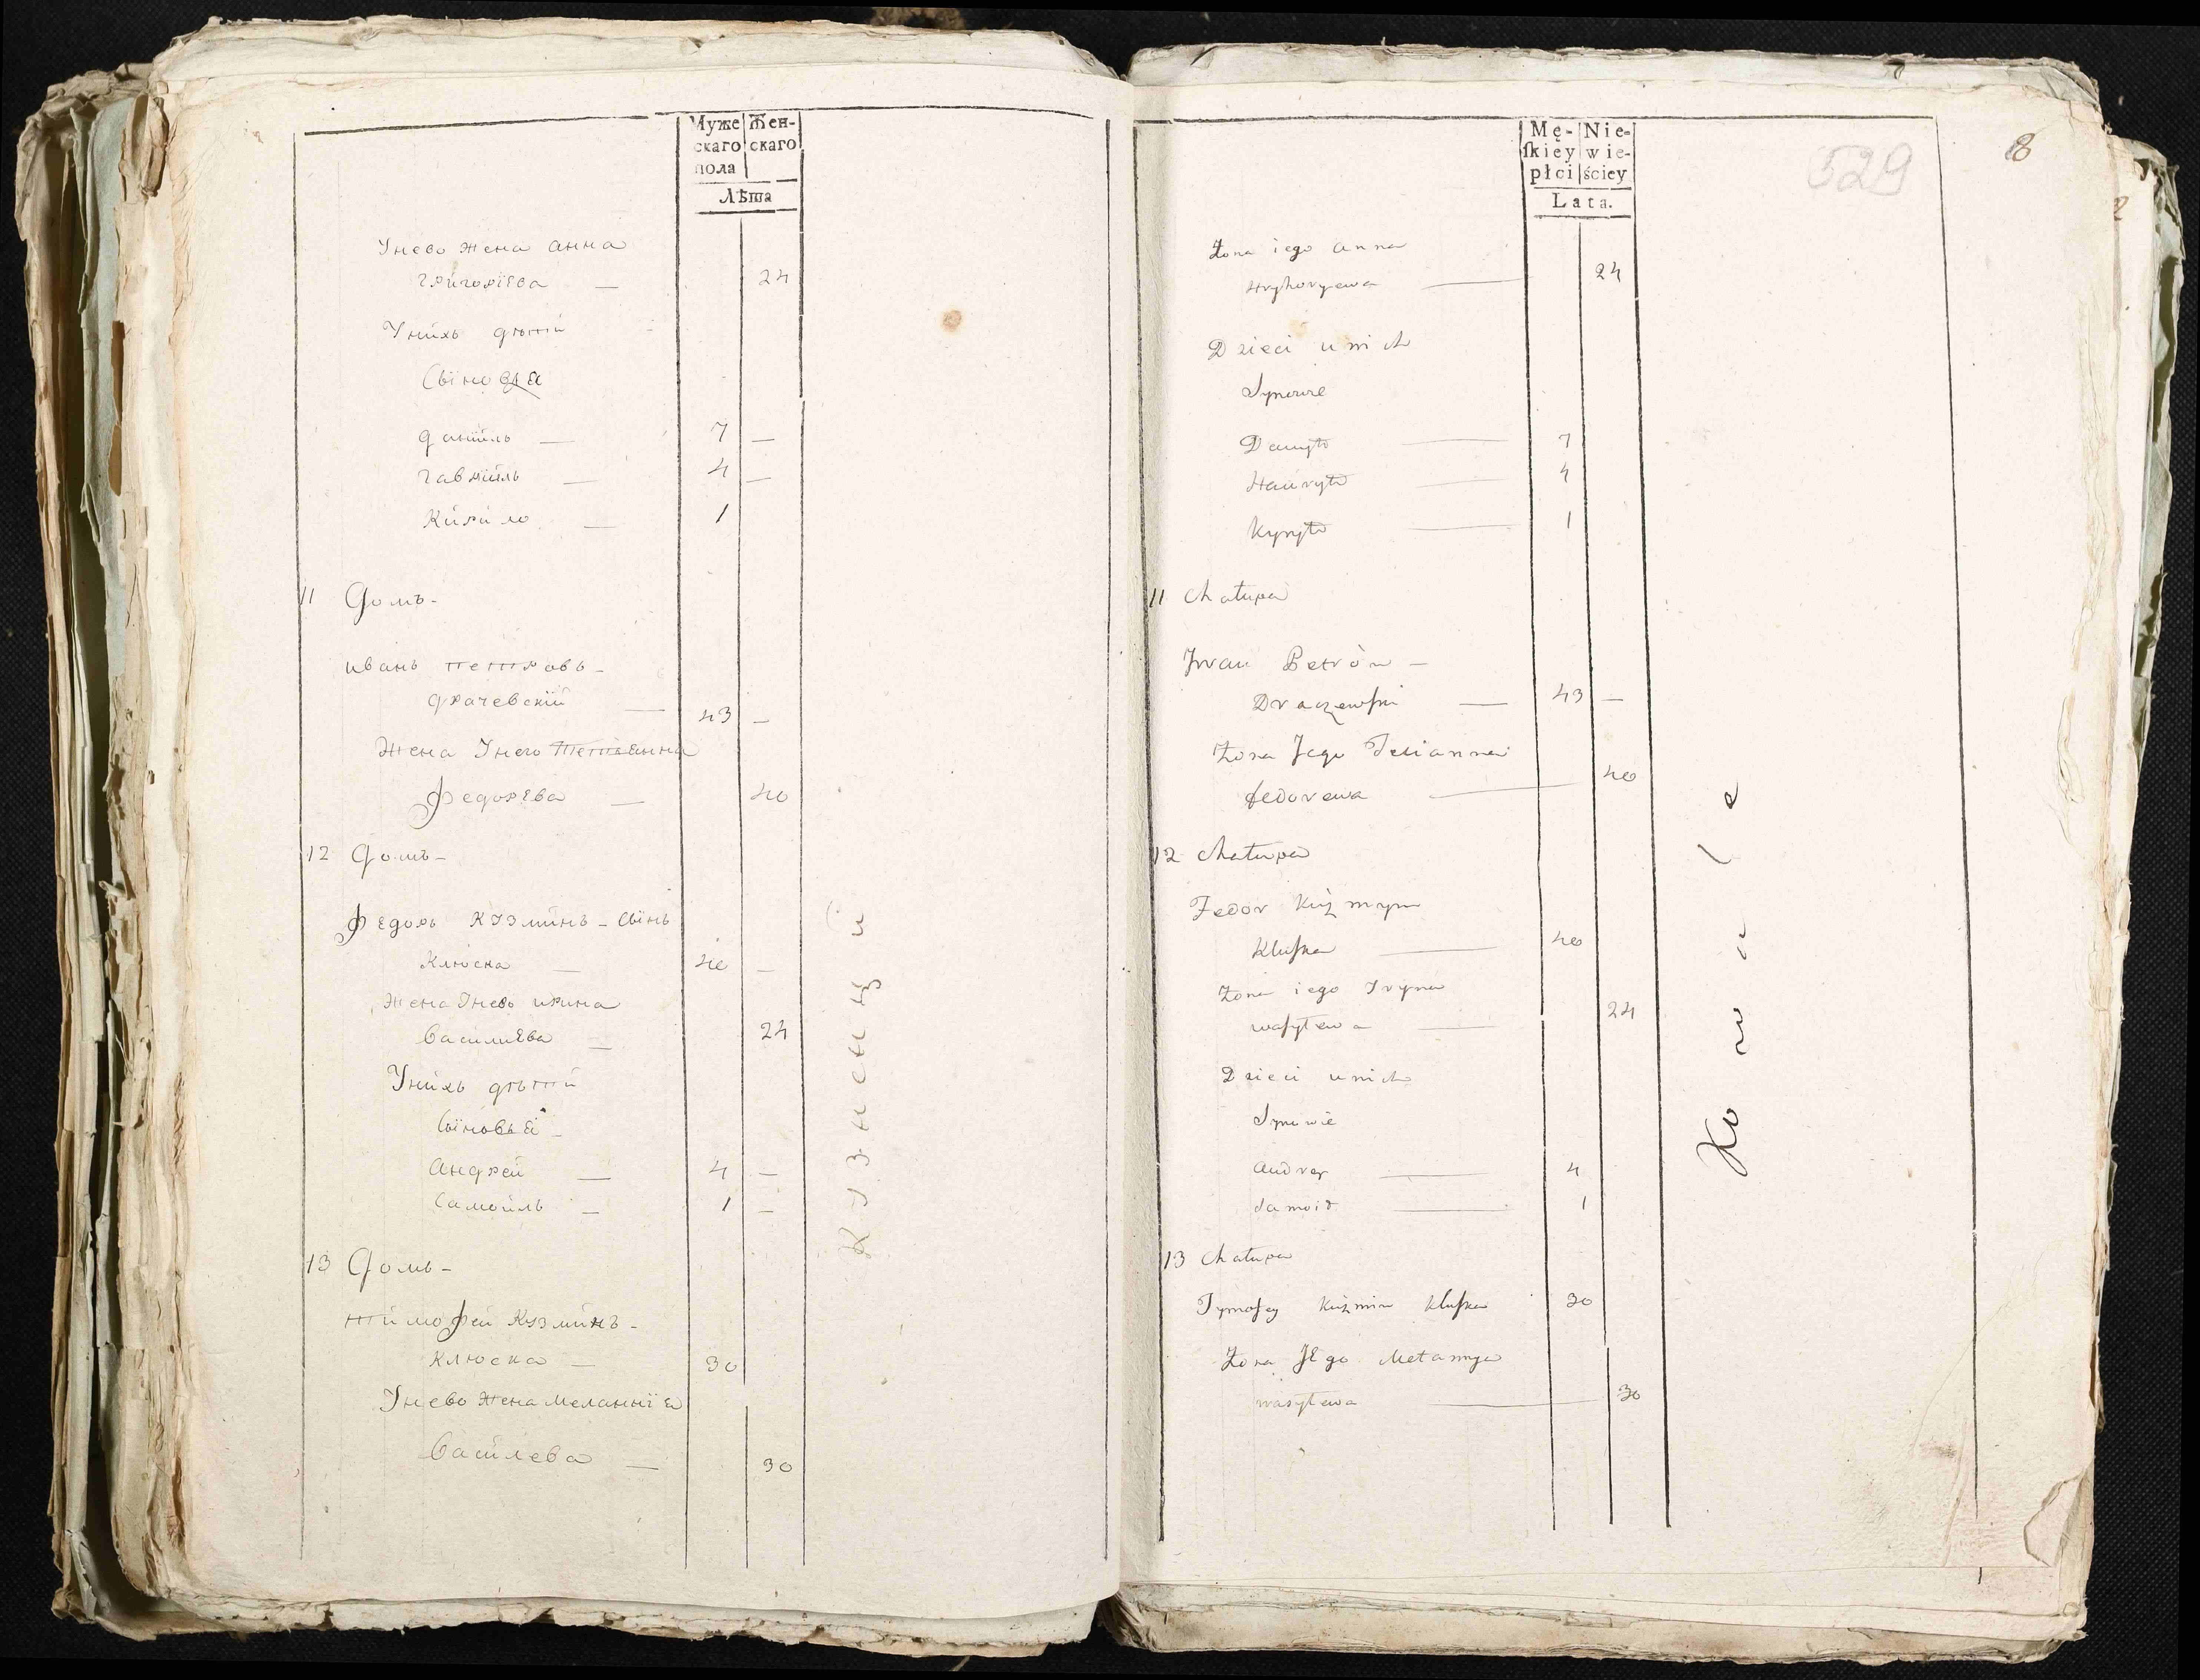 Муже Жен-
скаго скаго
пола
Лѣта
Унево жена анна
григориева — 24
Унихъ дѣти
Сыновья
данїилъ — 7 —
гаврїилъ — 4 —
Кирило — 1
11 Домъ-
иванъ петровъ-
драчевский — 43 —
Жена Унего Тетиянна
федорева — 40
12 Домъ-
федоръ кузминъ - сынъ
Клюска — 40 —
жена Унево ирина
Василиева — 24
Унихъ дѣти
Сыновья -
андрей — 4 —
Самоилъ — 1 —
13 Домъ-
тимофей Кузминъ-
Клюска — 30
Унево жена меланнїя
Василева — 30
Кузнецы
Mę- Nie-
ſkiey wie-
płci ściey
Lata.
529
8
Żona iego anna
Hryhoryewa — 24
Dzieci unich
Synowie
Danyło — 7
Hawryło — 4
Kyryło — 1
11 Chałupa
Jwan Petrów —
Draczewſki — 43 —
Żona Jego Tecianna
fedorewa — 40
12 Chałupa
Fedor Kuźmyn
Kluſka — 40
Żona iego Iryna
waſylewa — 24
Dzieci unich
Synowie
andrey — 4
Samoił — 1
13 Chałupa
Tymofey Kuźmin Kluſka 30
Żona JEgo Melannya
wasylewa — 30
Kowale